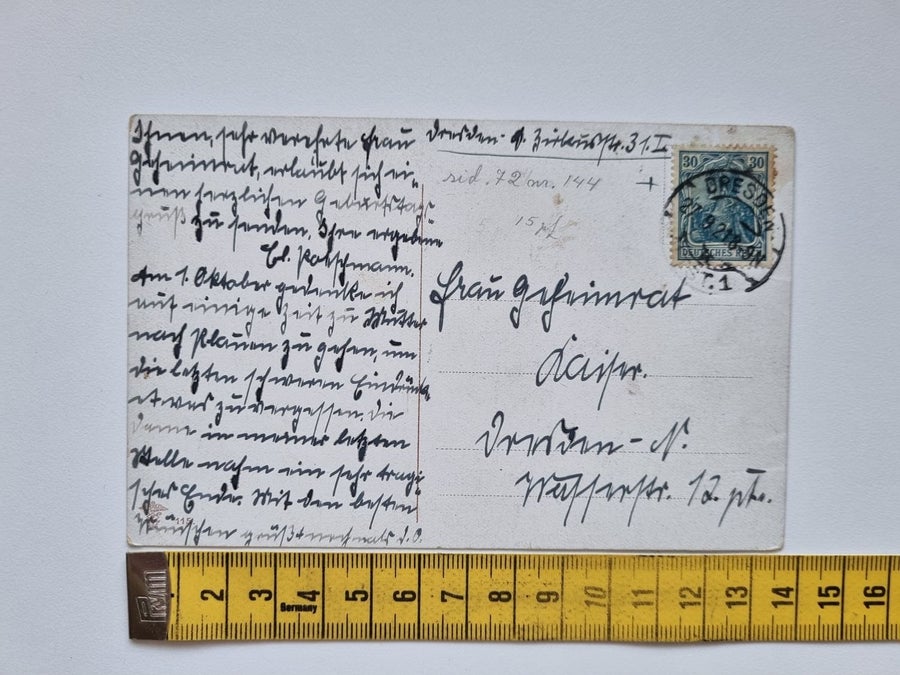 Ihnen, sehr verehrte Frau
Geheimrat, erlaubt sich ei-
nen herzlichen Geburtstags-
gruß zu senden, Ihre ergebene
El. Poeschmann.
Am 1. Oktober gedenke ich
auf einige Zeit zu Mutter
nach Plauen zu gehen, um
die letzten schweren Eindrücke
etwas zu vergessen. Die
Dame in meiner letzten
Stelle nahm ein sehr tragi-
sches Ende. Mit den besten
Wünschen grüßt nochmals d. O.
Dresden- Zirkusstr. 31. II
72 nr. 144
15 pf
30 30
DEUTSCHES REICH
DRESDEN
Frau Geheimrat
Kaiser.
Dresden-N.
Wasserstr. 12. ptr.
115
2 3 4 5 6 7 8 9 10 11 12 13 14 15 16
Germany